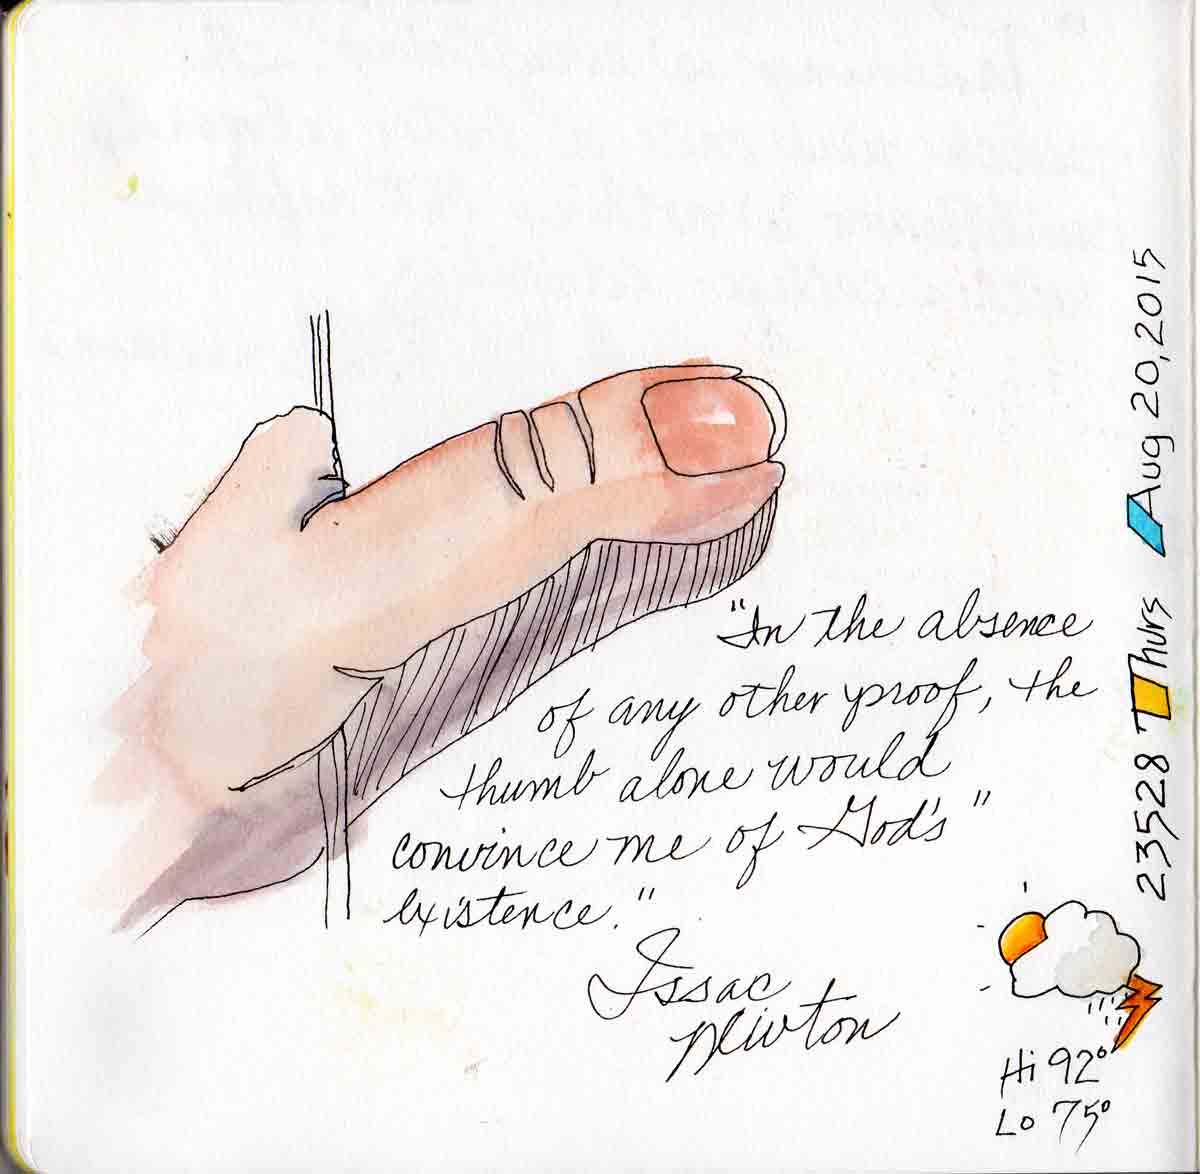 "In the absence
of any other proof, the
thumb alone would
convince me of God's"
existence."
Issac
Newton
23528 Thurs Aug 20, 2015
Hi 92°
Lo 75°